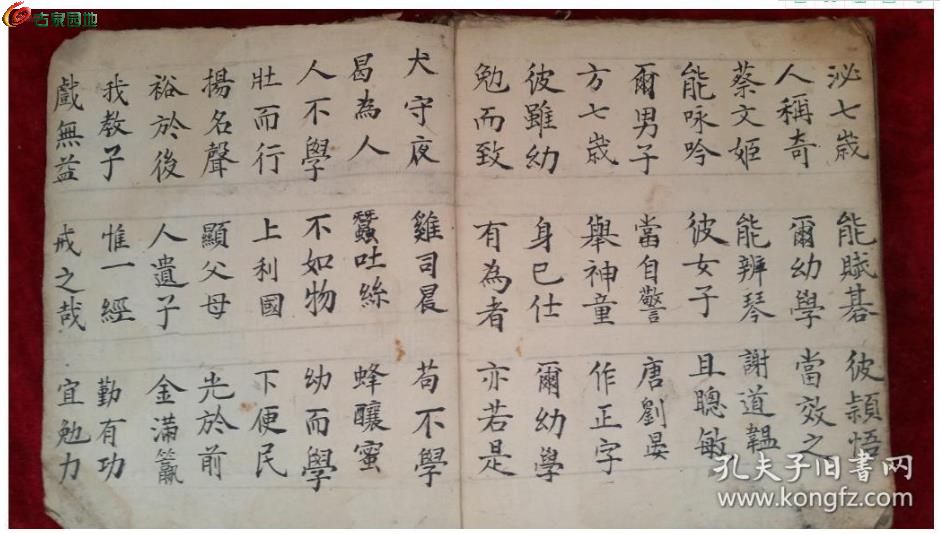 古泉园地
泌七歲 能賦碁 彼穎悟
人稱奇 爾幼學 當效之
蔡文姬 能辨琴 謝道韞
能咏吟 彼女子 且聰敏
爾男子 當自警 唐劉晏
方七歲 舉神童 作正字
彼雖幼 身已仕 爾幼學
勉而致 有為者 亦若是
犬守夜 雞司晨 苟不學
曷為人 蠶吐絲 蜂釀蜜
人不學 不如物 幼而學
壯而行 上利國 下便民
揚名聲 顯父母 光於前
裕於後 人遺子 金滿籯
我教子 惟一經 勤有功
戲無益 戒之哉 宜勉力
孔夫子旧书网
www.kongfz.com